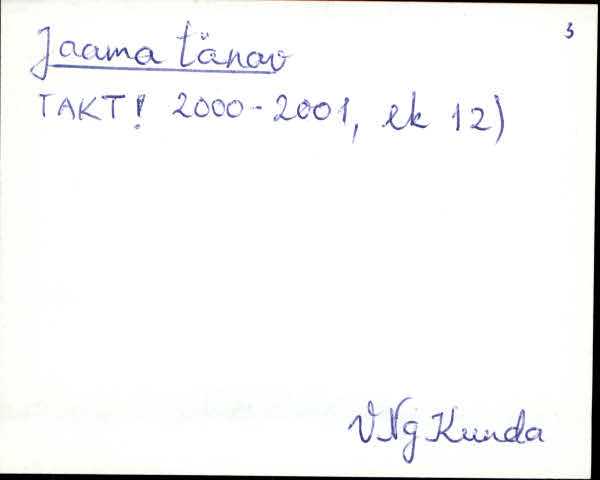 3
Jaama tänav
TAKT! 2000-2001, ek 12)
VNg Kunda